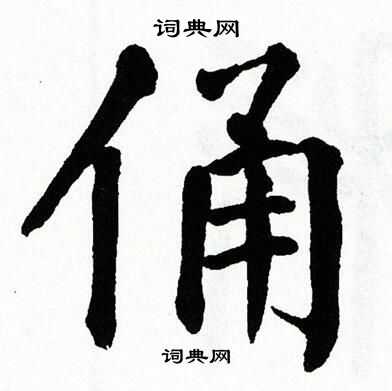 词典网
俑
词典网